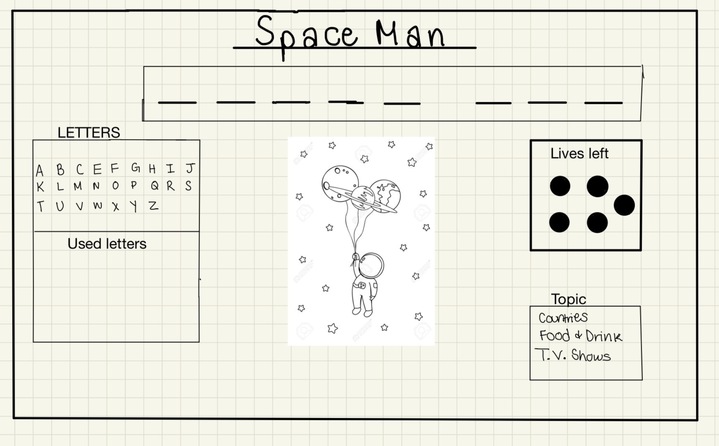 Space Man
LETTERS
A B C E F G H I J
K L M N O P Q R S
T U V W X Y Z
Used letters
Lives left
Topic
Countries
Food & Drink
T.V. Shows